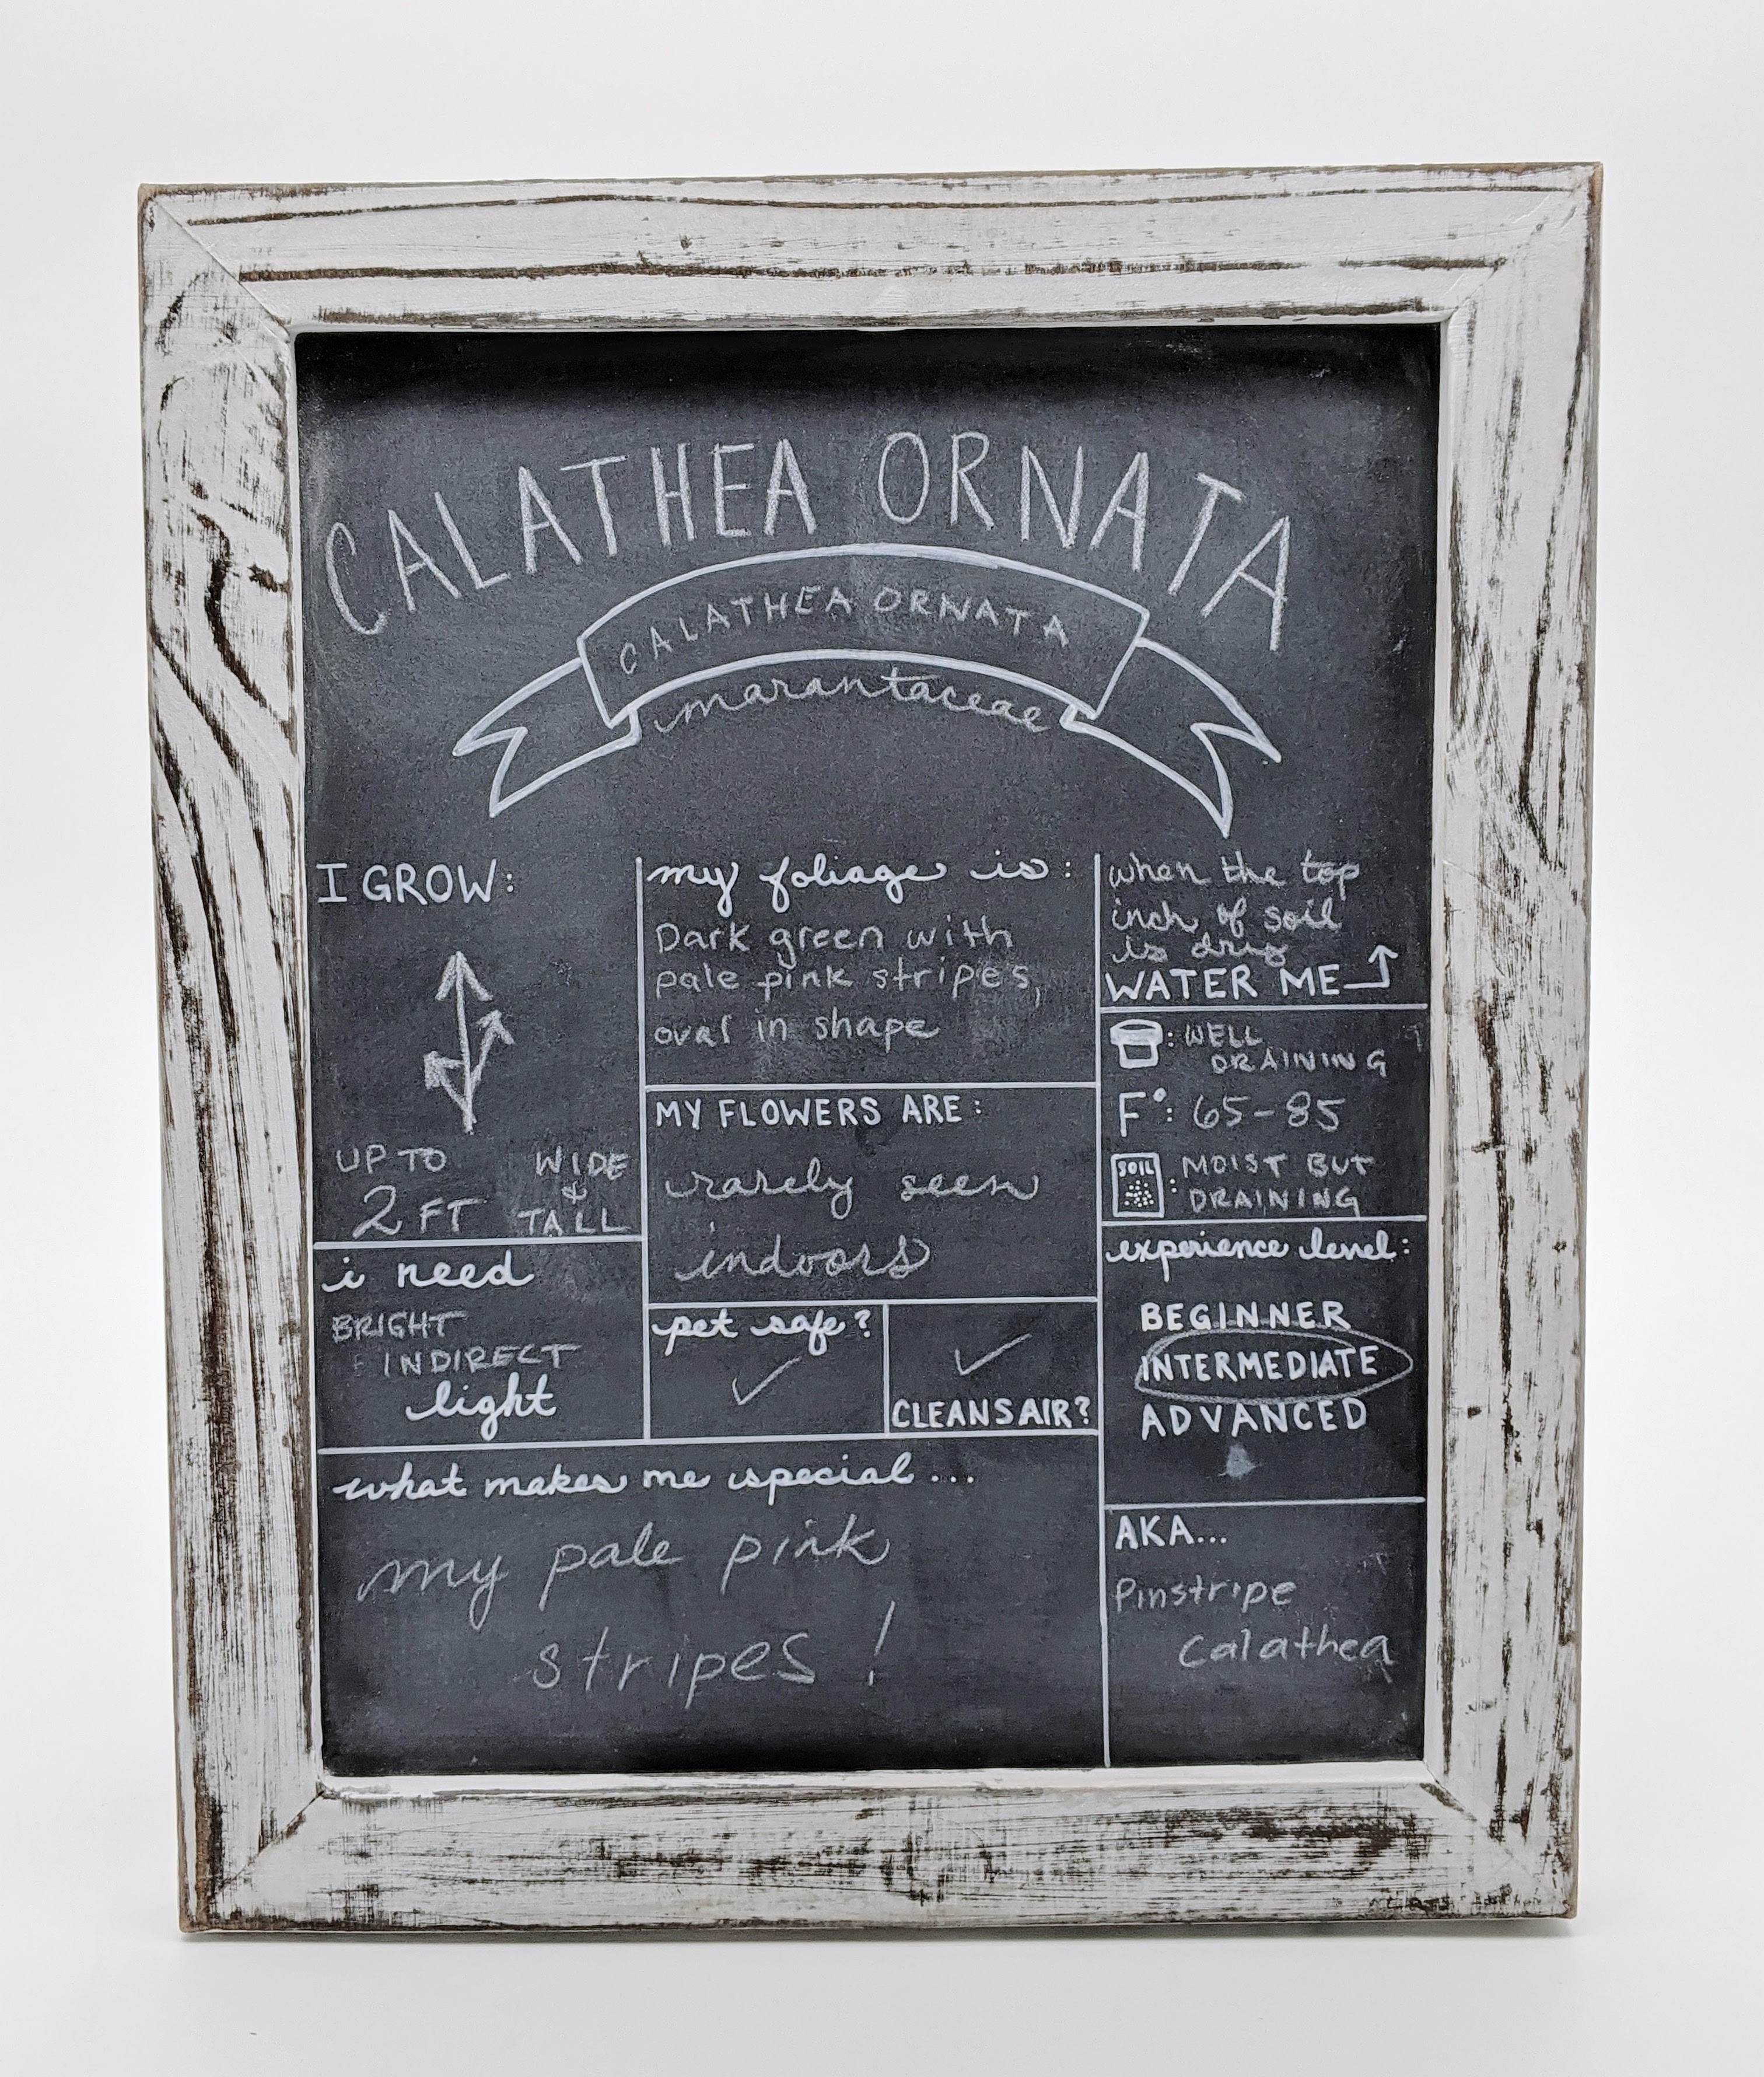 CALATHEA ORNATA
CALATHEA ORNATA
marantaceae
I GROW:
UP TO
2 FT
WIDE
&
TALL
i need
BRIGHT
INDIRECT
light
my foliage is:
Dark green with
pale pink stripes,
oval in shape
MY FLOWERS ARE:
rarely seen
indoors
pet safe?
✓
✓
CLEANS AIR?
when the top
inch of soil
is dry
WATER ME
: WELL
DRAINING
F°: 65-85
SOIL
: MOIST BUT
DRAINING
experience level:
BEGINNER
INTERMEDIATE
ADVANCED
what makes me special...
my pale pink
stripes!
AKA...
Pinstripe
Calathea